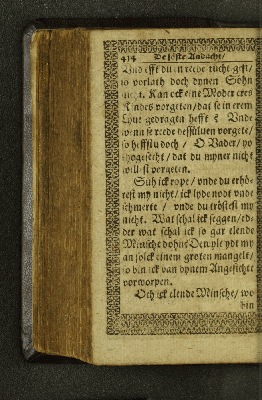 414 De söste Andacht/
Vnd efft du
so vorlath doch dynen Söhn
nicht. Kan ock eine Moder eres
Kindes vorgeten/ dat se in erem
Lyue gedragen hefft? Vnde
wenn se rede dessüluen vorgete/
so heffstu doch / O Vader/
thogesecht / dat du myner nicht
wilt vorgeten.
Süh ick rope/ vnde du erhö-
rest my nicht/ ick lyde nodt vnde
schmerte / vnde du tröstest my
nicht. Wat schal ick seggen/ ed-
der wat schal ick so gar elende
Minsche dohn? Den yle ydt my
an solck einem groten mangelt/
so bin ick van dynem Angesichte
vorworpen.
Och ick elende Minsche/ wo
bin